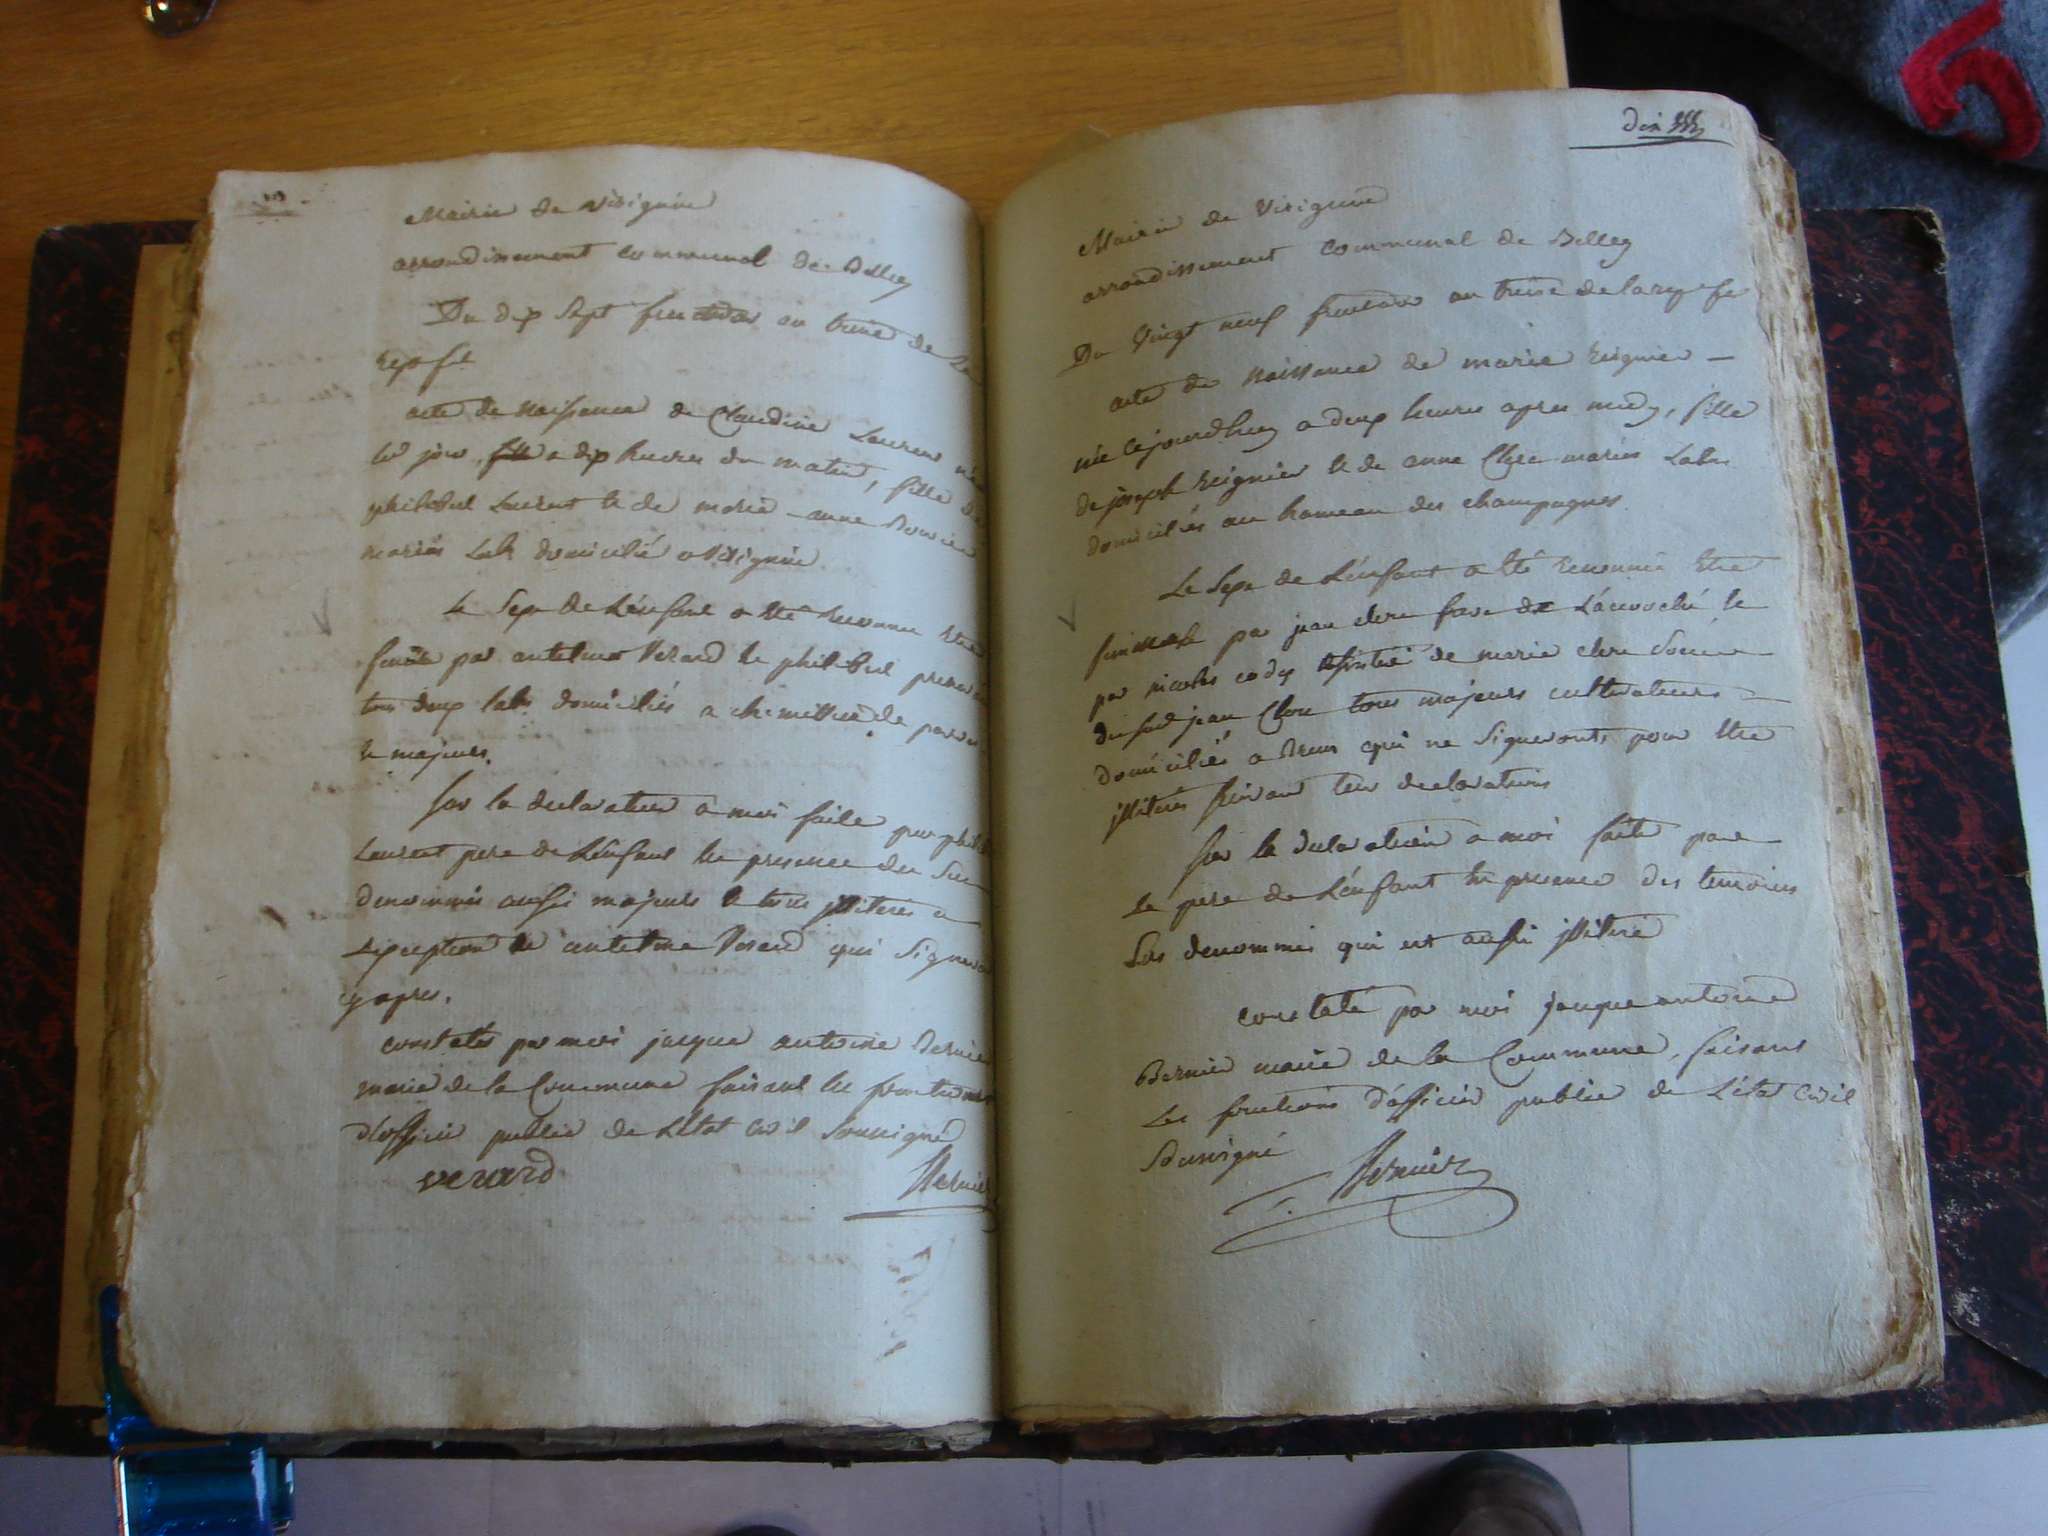 Mairie de Virignin
arrondissement communal de Belley
Du dix Sept fructidor an treize de La
rep. fse
acte de Naissance de Claudine Laurent née
ce jour a dix heures du matin, fille de
philibert Laurent et de marie-anne
mariés domicilié a Virignin
Le Sexe de L'énfant a été reconnu Etre
par antelme Verard et philibert
tous deux domiciliés a de
et majeurs.
Sur la declaration a moi faite par
Laurent pere de L'énfant En presence des Sus
denommés aussi majeurs & tous jlliterés a
L'exception de antelme Verard qui Signera
cy apres.
constatés par moi jacque antoine Bernier
maire de la Commune faisant les fonctions
d'officier public de L'état civil Soussigné
verard Bernier
dix
Mairie de Virignin
arrondissement communal de Belley
Du Vingt neuf fructidor an treize de la rep. fse
acte de Naissance de marie Reignier —
née cejourdhuy a deux heures apres midy, fille
de joseph Reignier et de anne Clerc mariés
domiciliés au hameau des champagnes
Le Sexe de L'énfant a été reconnu Etre
par jean clerc de et
par nicolas de marie clerc
du jean Clerc tous majeurs cultivateurs
domiciliés a Brens qui ne Signeront pour Etre
jlliterés Suivant leur declarations
Sur la declaration a moi faite par
Le pere de L'énfant En presence des temoins
Sus denommés qui est aussi jlliteré
constaté par moi Jacque antoine
Bernier maire de la Commune, faisant
Les fonctions d'officier public de L'état Civil
Soussigné
Bernier